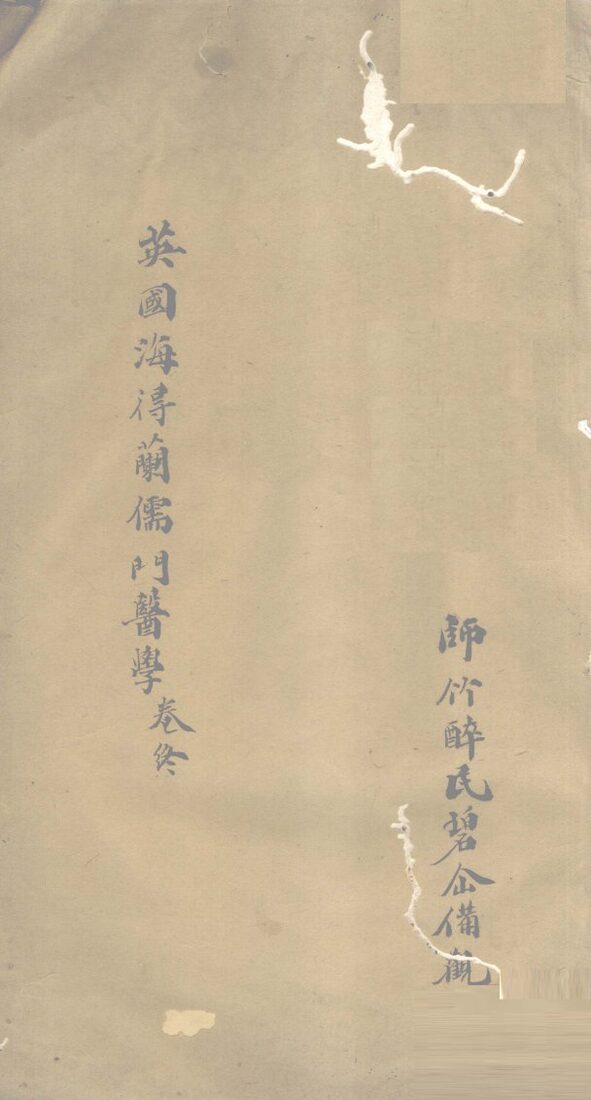 師竹醉民碧仚備觀
英國海得蘭儒門醫學卷終